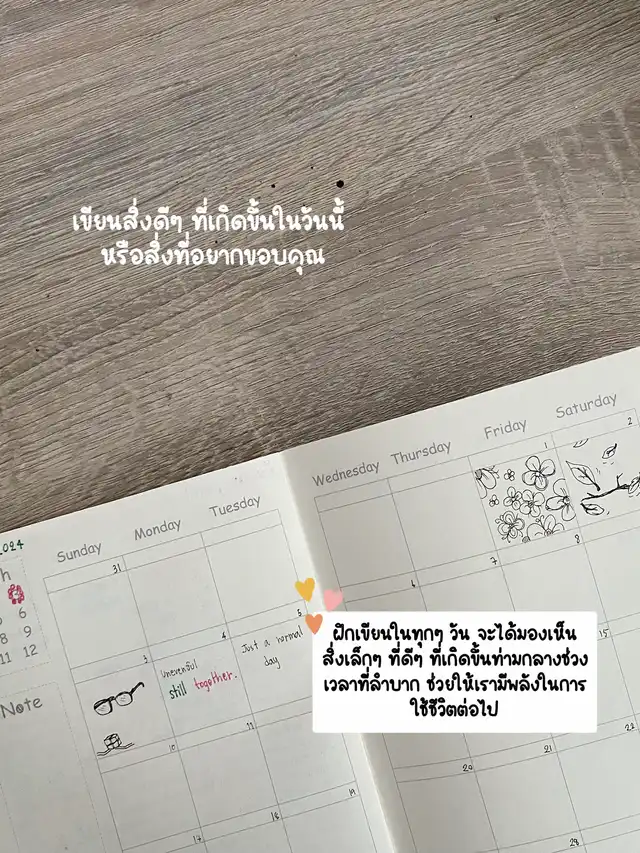 เขียนสิ่งดีๆ ที่เกิดขึ้นในวันนี้
หรือสิ่งที่อยากขอบคุณ
Sunday
Monday
Tuesday
Wednesday
Thursday
Friday
Saturday
2024
h
6
8 9
11 12
Note
31
1
2
3
4
5
6
7
8
Uneventful
still together.
Just a normal
day
10
11
15
ฝึกเขียนในทุกๆ วัน จะได้มองเห็น
สิ่งเล็กๆ ที่ดีๆ ที่เกิดขึ้นท่ามกลางช่วง
เวลาที่ลำบาก ช่วยให้เรามีพลังในการ
ใช้ชีวิตต่อไป
17
18
19
20
21
22
28